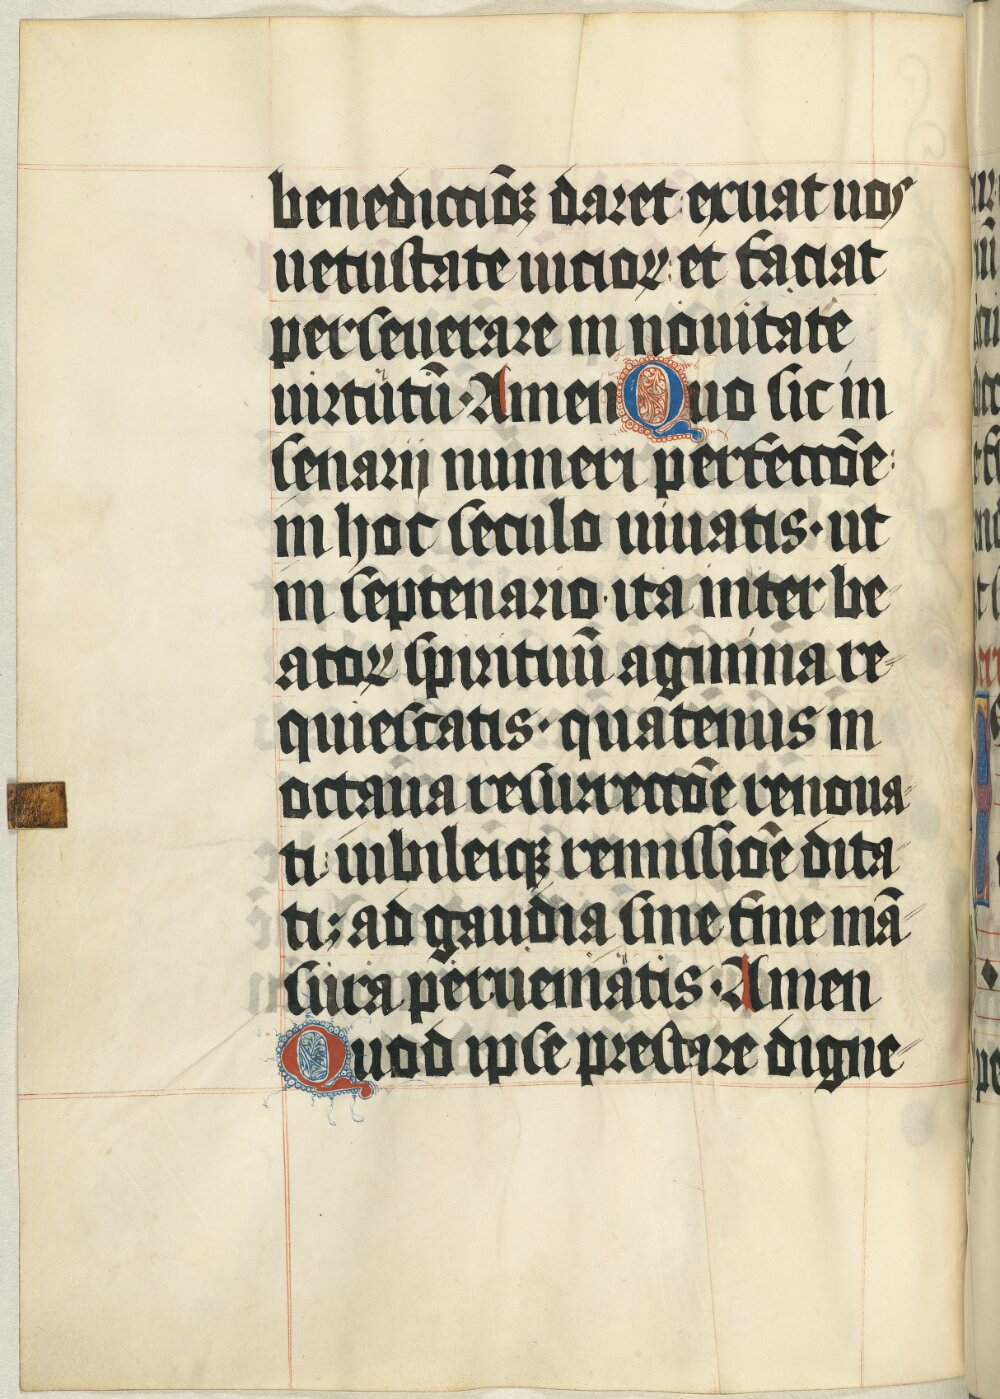 benedicciōꝫ daret exuat uos
uetustate uicioꝝ et faciat
perseuerare in nouitate
uirtutū· Amen Quo sic in
senarij numeri perfeccōe
in hoc seculo uiuatis· ut
in septenario· ita inter be
atoꝝ spirituū agmina re
quiescatis· quatenus in
octaua resurreccōe renoua
ti iubileiqꝫ remissiōe dita
ti; ad gaudia sine fine mā
sura perueniatis· Amen
Quod ipse prestare digne